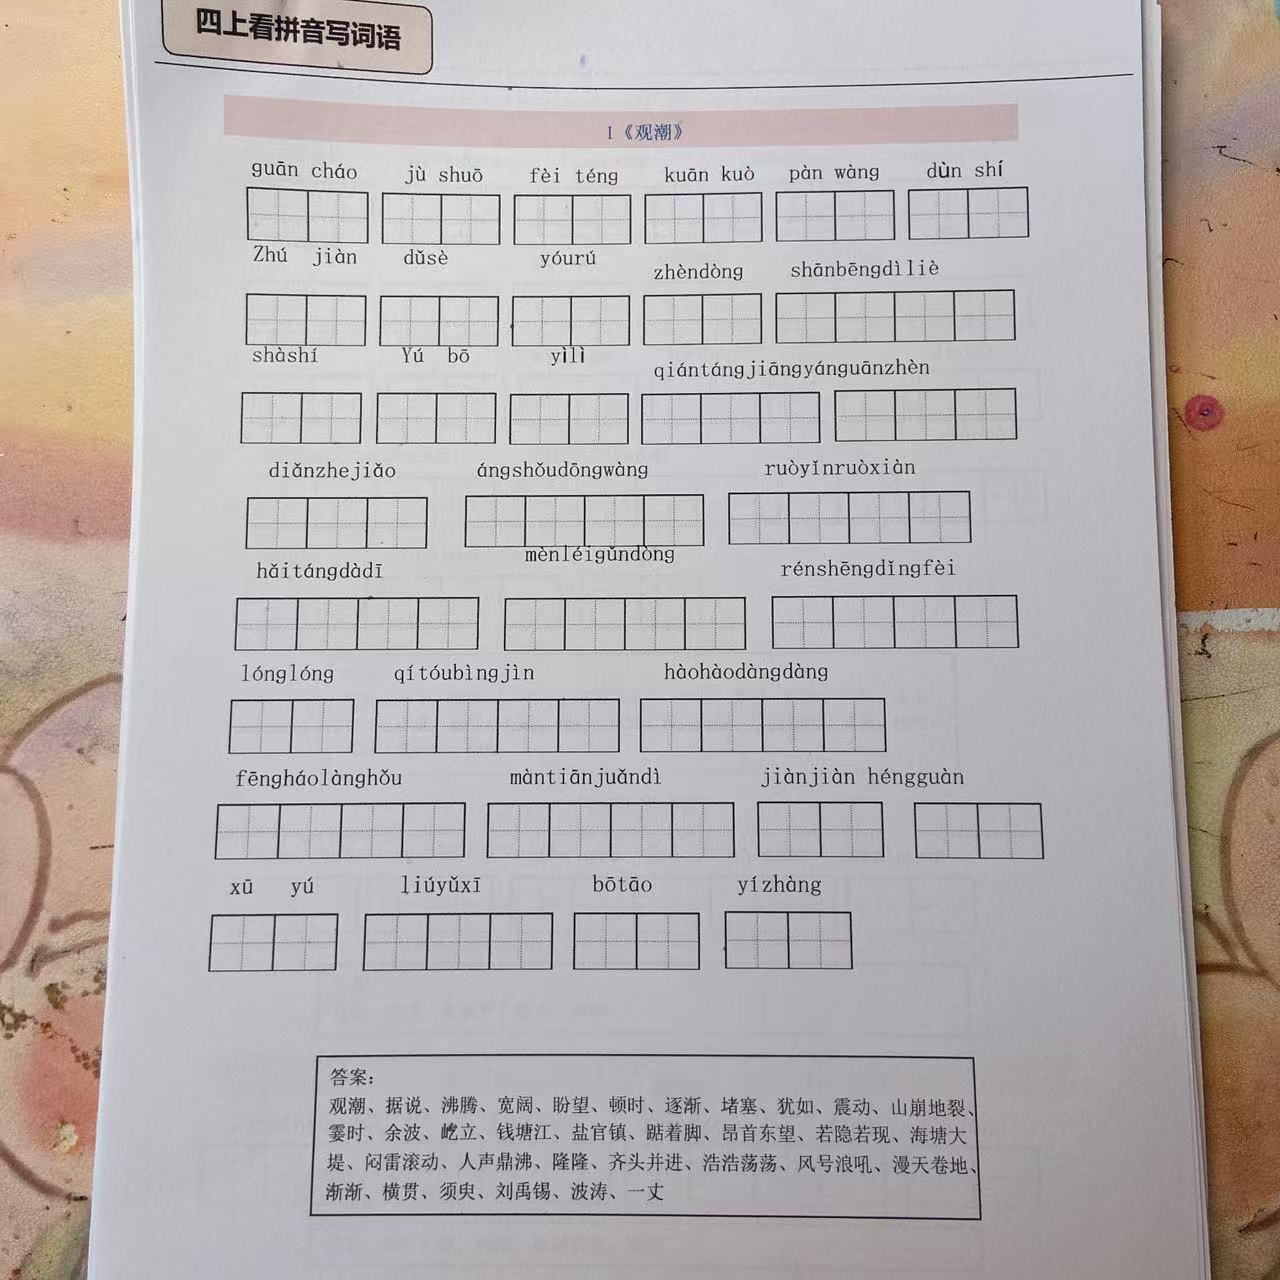 四上看拼音写词语
1《观潮》
guān cháo jù shuō fèi téng kuān kuò pàn wàng dùn shí
Zhú jiàn dǔsè yóurú zhèndòng shānbēngdìliè
shàshí Yú bō yìlì qiántángjiāngyánguānzhèn
diǎnzhejiǎo ángshǒudōngwàng ruòyǐnruòxiàn
hǎitángdàdī mènléigǔndòng rénshēngdǐngfèi
lónglóng qítóubìngjìn hàohàodàngdàng
fēngháolànghǒu màntiānjuǎndì jiànjiàn héngguàn
xū yú liúyǔxī bōtāo yízhàng
答案：
观潮、据说、沸腾、宽阔、盼望、顿时、逐渐、堵塞、犹如、震动、山崩地裂、
霎时、余波、屹立、钱塘江、盐官镇、踮着脚、昂首东望、若隐若现、海塘大
堤、闷雷滚动、人声鼎沸、隆隆、齐头并进、浩浩荡荡、风号浪吼、漫天卷地、
渐渐、横贯、须臾、刘禹锡、波涛、一丈